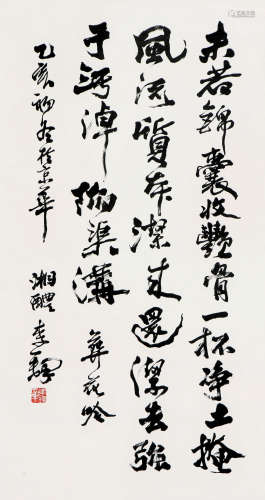 未若錦囊收艷骨一杯净土掩
風流質本潔来還潔去强
于污淖陷渠溝 葬花吟
乙亥初冬於京華
湘醴李鐸